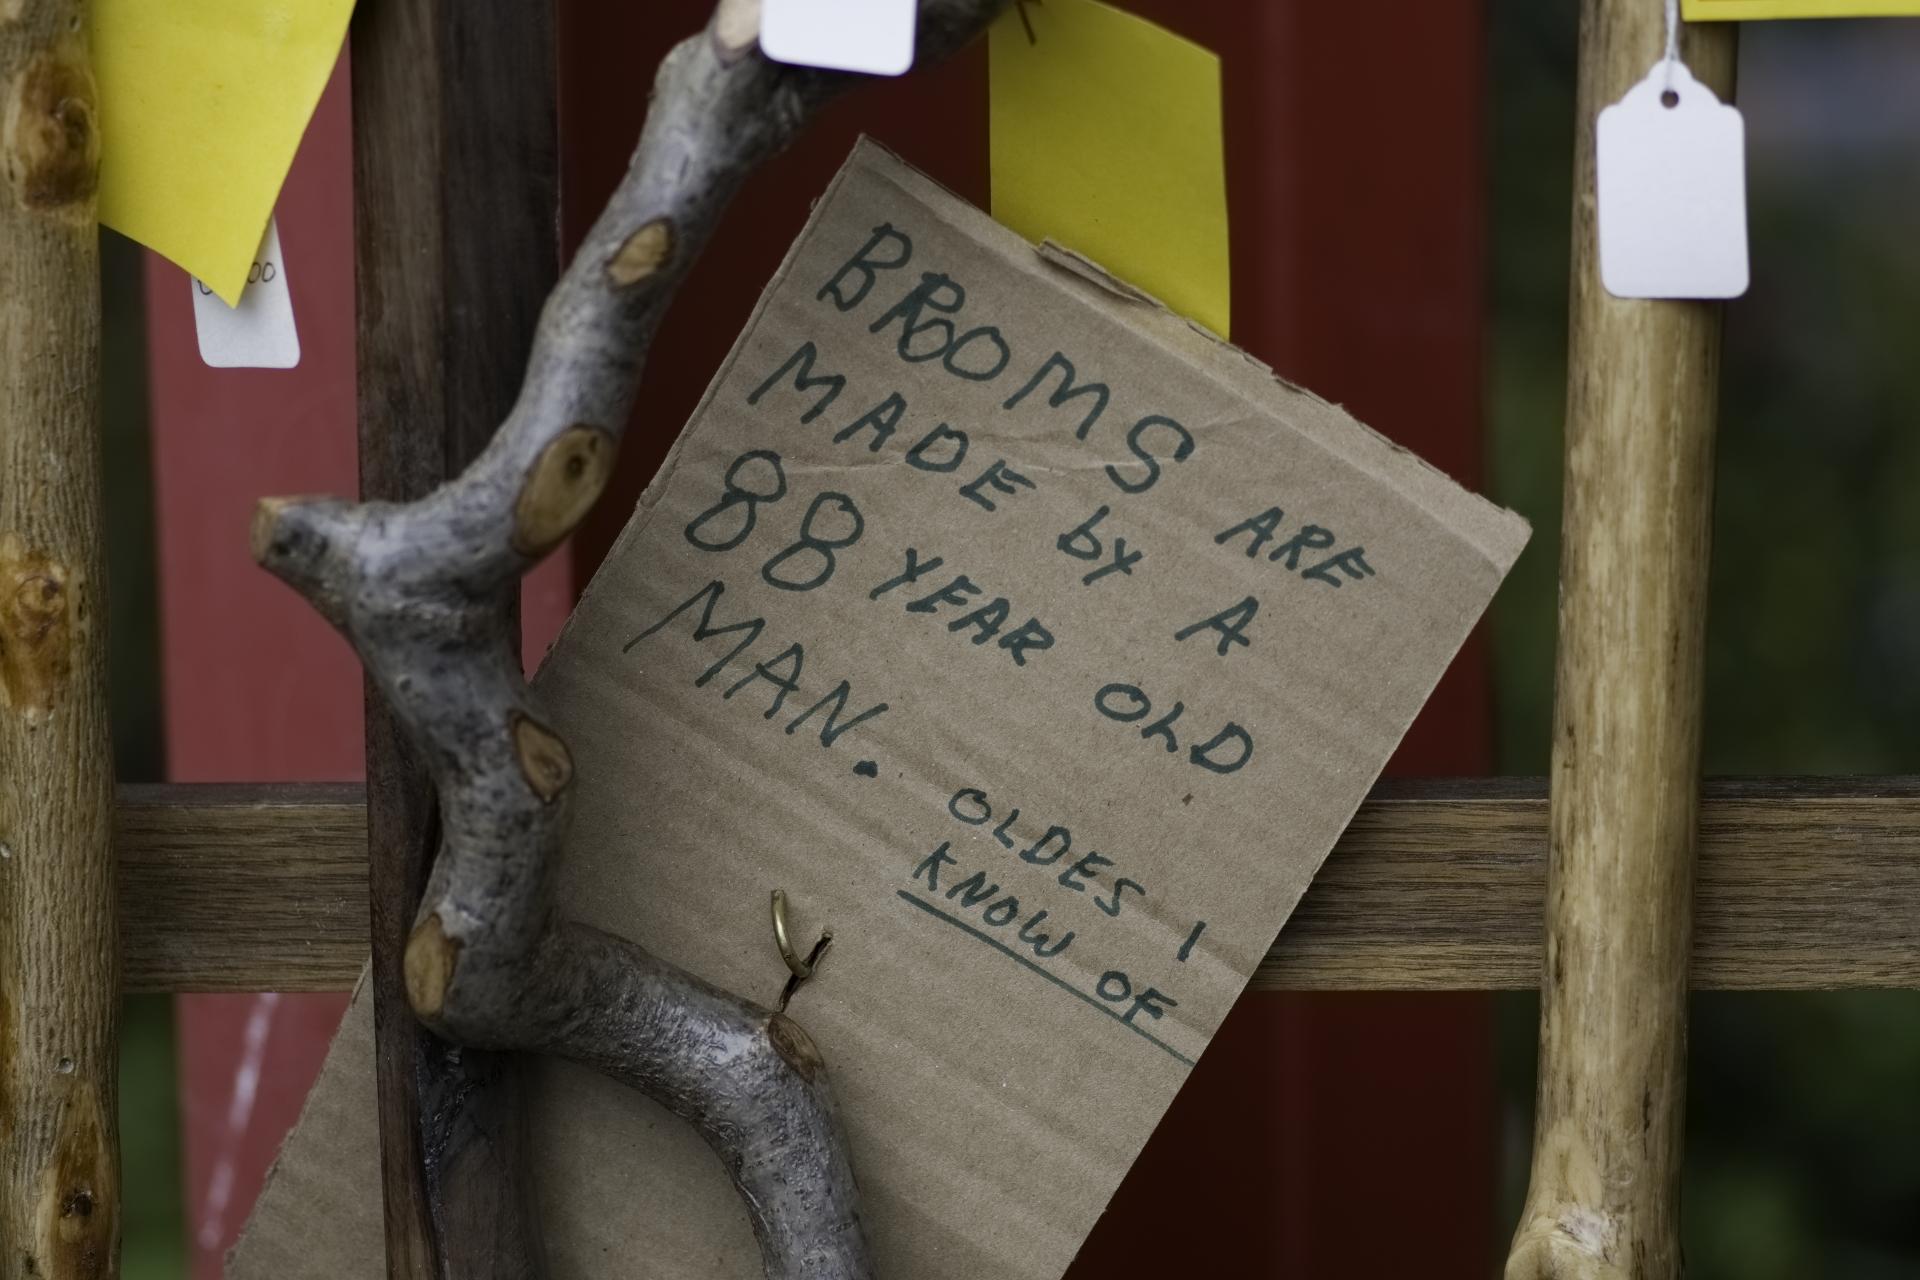 BROOMS ARE
MADE by A
88 YEAR OLD
MAN.
OLDES I
KNOW OF